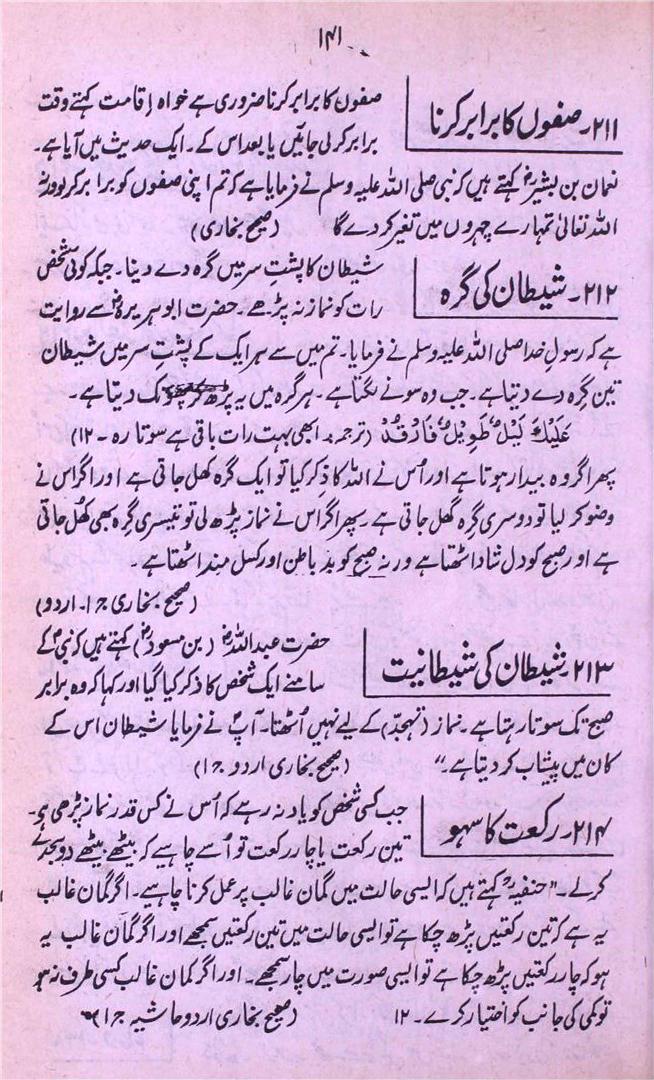 ۱۴۱
۲۱۱۔ صفوں کا برابر کرنا
صفوں کا برابر کرنا ضروری ہے خواہ اقامت کہتے وقت
برابر کر لی جائیں یا بعد اس کے۔ ایک حدیث میں آیا ہے۔
نعمان بن بشیرؓ کہتے ہیں کہ نبی صلی اللہ علیہ وسلم نے فرمایا ہے کہ تم اپنی صفوں کو برابر کر لو ورنہ
اللہ تعالیٰ تمہارے چہروں میں تغیر کر دے گا (صحیح بخاری)
۲۱۲۔ شیطان کی گرہ
شیطان کا پشتِ سر میں گرہ دے دینا۔ جبکہ کوئی شخص
رات کو نماز نہ پڑھے۔ حضرت ابوہریرہؓ سے روایت
ہے کہ رسولِ خدا صلی اللہ علیہ وسلم نے فرمایا۔ تم میں سے ہر ایک کے پشتِ سر میں شیطان
تین گرہ دے دیتا ہے۔ جب وہ سونے لگتا ہے۔ ہر گرہ میں یہ پڑھ کر پھونک دیتا ہے۔
عَلَيْكَ لَيْلٌ طَوِيْلٌ فَارْقُدْ (ترجمہ: ابھی بہت رات باقی ہے سوتا رہ۔ ۱۲)
پھر اگر وہ بیدار ہوتا ہے اور اُس نے اللہ کا ذِکر کیا تو ایک گرہ کھل جاتی ہے اور اگر اس نے
وضو کر لیا تو دوسری گرہ کھل جاتی ہے۔ پھر اگر اس نے نماز پڑھ لی تو تیسری گرہ بھی کھُل جاتی
ہے اور صبح کو دل شاد اٹھتا ہے ورنہ صبح کو بد باطن اور کسل مند اٹھتا ہے۔
(صحیح بخاری ج ۱۔ اردو)
۲۱۳۔ شیطان کی شیطانیت
حضرت عبداللہؓ (بن مسعودؓ) کہتے ہیں کہ نبیؐ کے
سامنے ایک شخص کا ذکر کیا گیا اور کہا کہ وہ برابر
صبح تک سوتا رہتا ہے۔ نماز (تہجد) کے لیے نہیں اُٹھتا۔ آپؐ نے فرمایا شیطان اس کے
کان میں پیشاب کر دیتا ہے۔“ (صحیح بخاری اردو ج ۱)
۲۱۴۔ رکعت کا سہو
جب کسی شخص کو یاد نہ رہے کہ اُس نے کس قدر نماز پڑھی ہو۔
تین رکعت یا چار رکعت تو اُسے چاہیے کہ بیٹھے بیٹھے دو سجدے
کر لے۔“ حنفیہؒ کہتے ہیں کہ ایسی حالت میں گمان غالب پر عمل کرنا چاہے۔ اگر گمان غالب
یہ ہے کہ تین رکعتیں پڑھ چکا ہے تو ایسی حالت میں تین رکعتیں سمجھے اور اگر گمان غالب یہ
ہو کہ چار رکعتیں پڑھ چکا ہے تو ایسی صورت میں چار سمجھے۔ اور اگر گمان غالب کسی طرف نہ ہو
تو کمی کی جانب کو اختیار کرے۔ ۱۲ (صحیح بخاری اردو حاشیہ ج ۱)